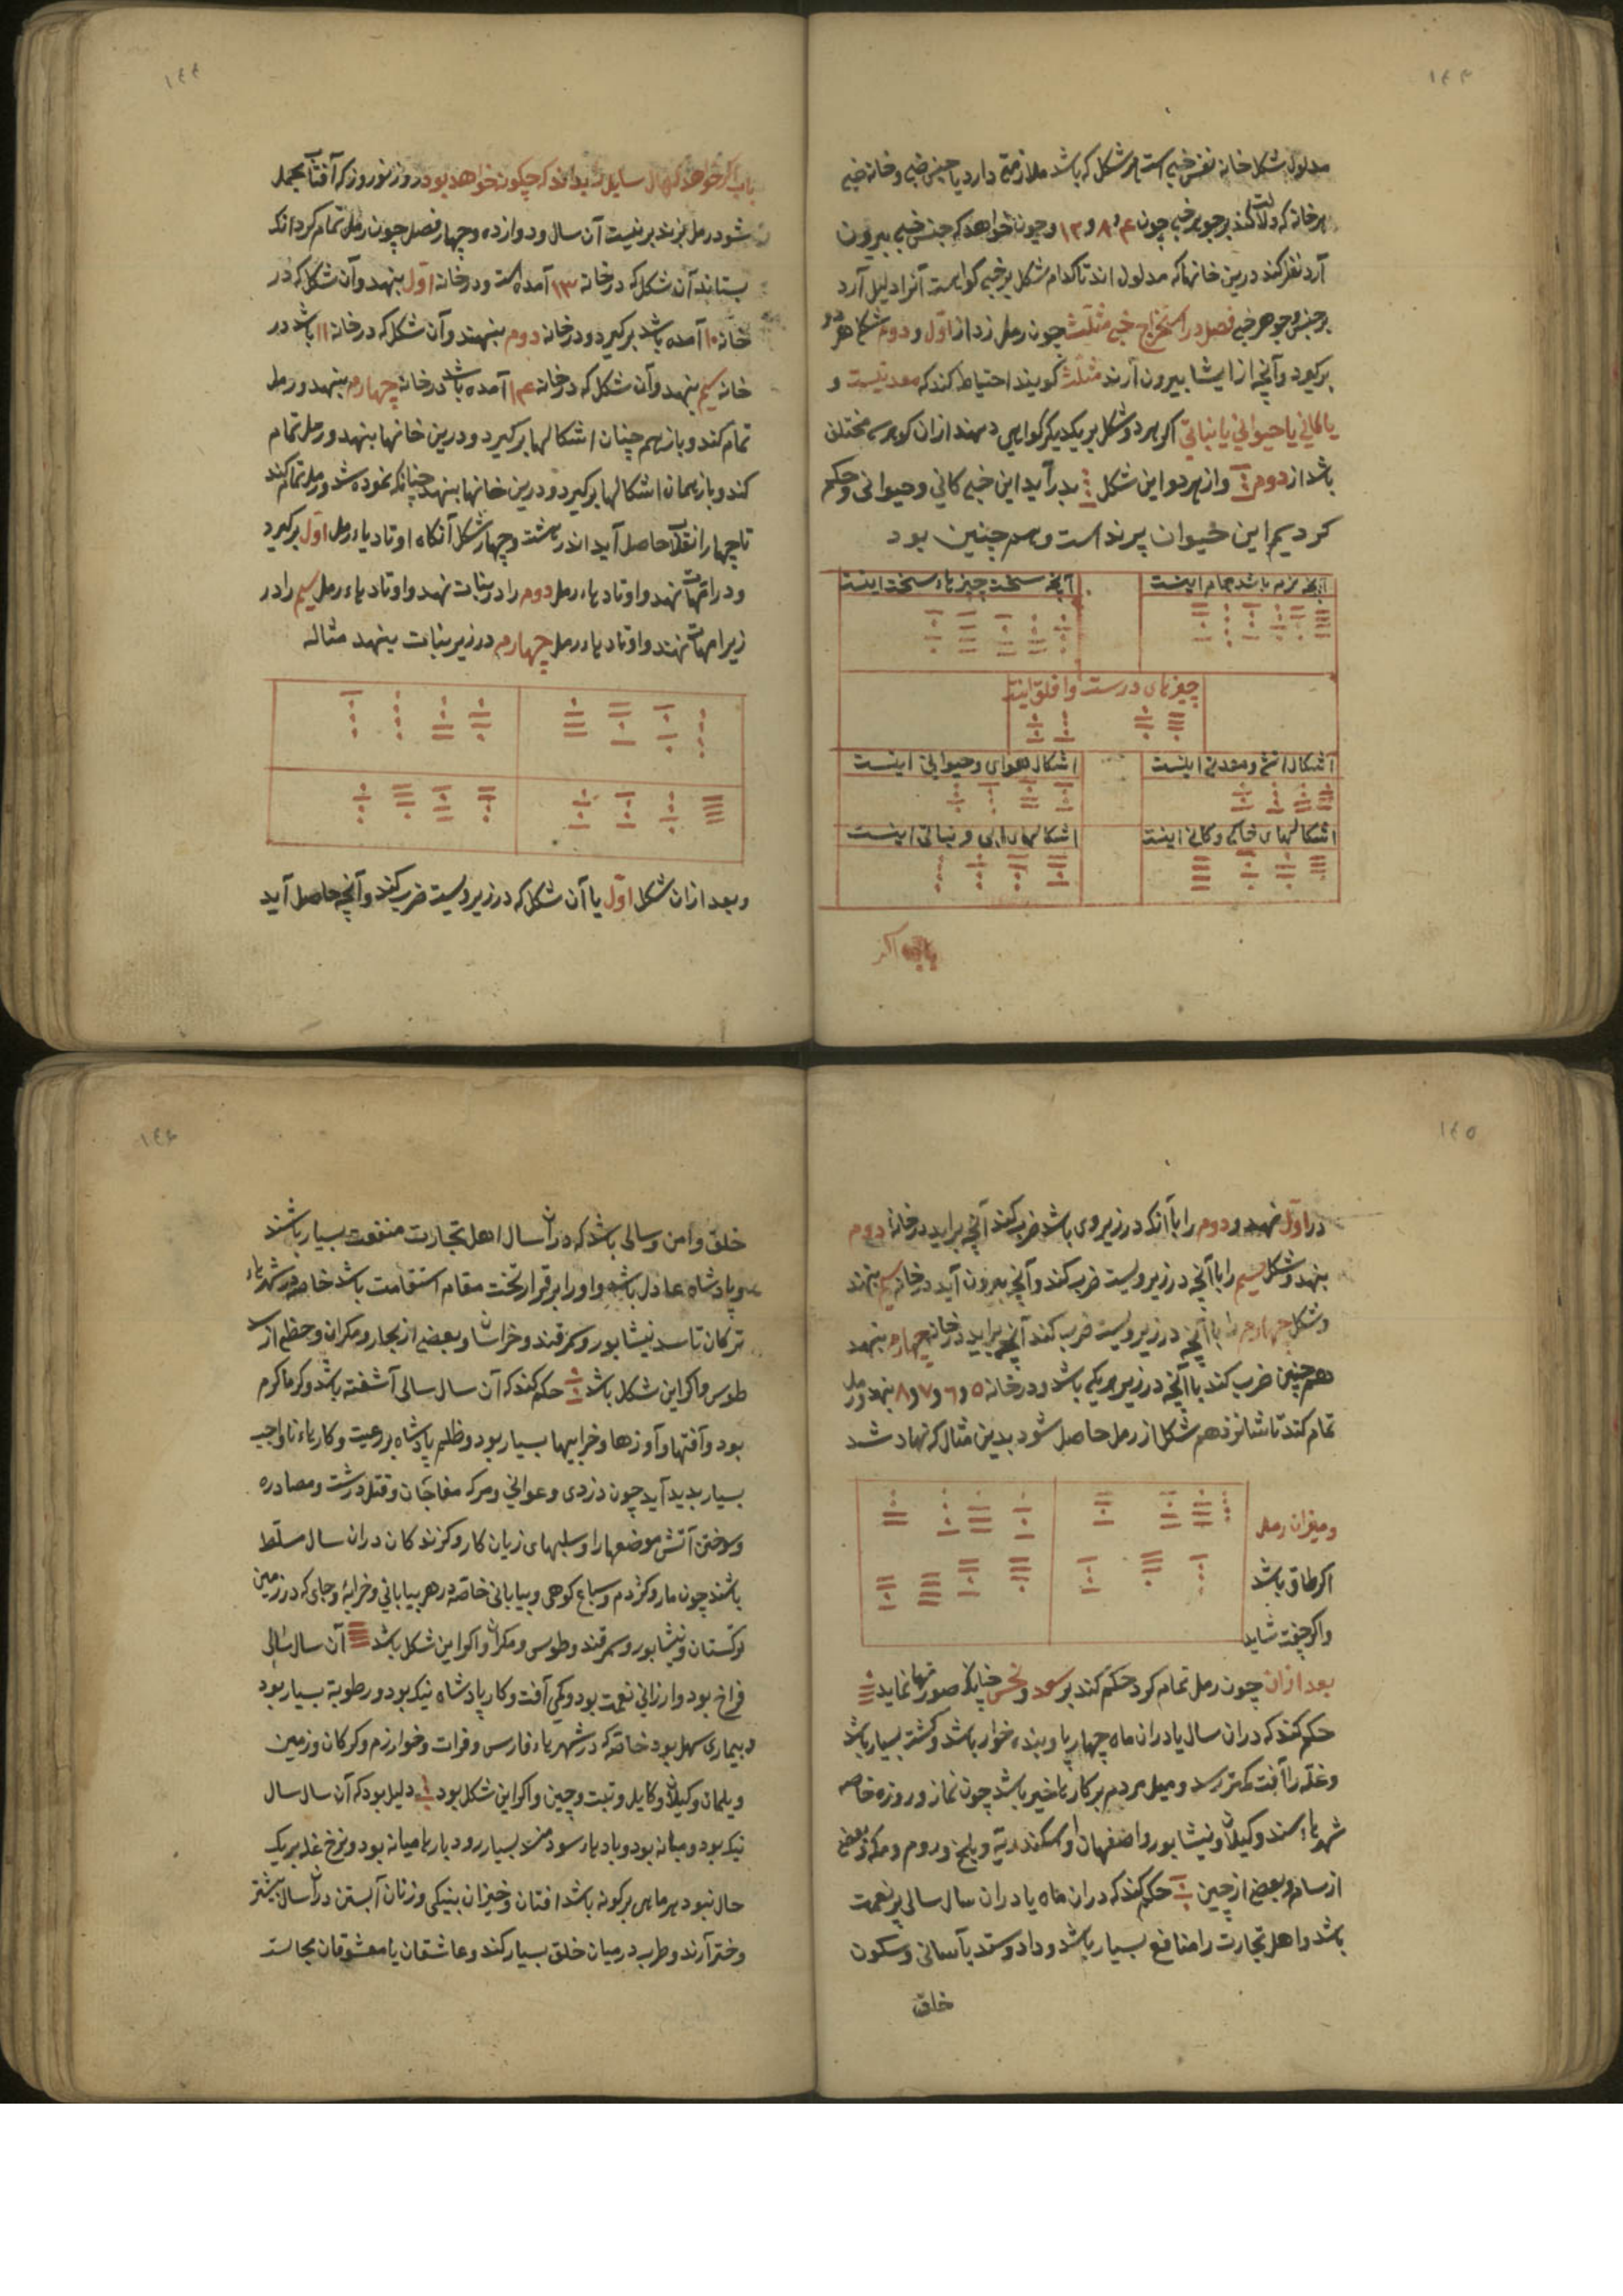 ١٤٣
مدلول شکل خانه نفس خبی است هر شکل که باشد ملازمتی دارد یا جنس خبی و خانه خبی
هر خانه که دلالت کند بر جوهر خبی چون ۴ و ۸ و ۱۲ و چون خواهد که جنس خبی بیرون
آرد نظر کند درین خانها که مدلول اند تا کدام شکل بر خبی کواهست آنرا دلیل آرد
بر جنس و جوهر خبی فصل در استخراج خبی مثلث چون رمل زد از اول و دوم شکل هر دو
برکیرد و آنچه از ایشا بیرون آرند مثلث کویند احتیاط کند که معدنیست و
یا کانی یا حیوانی یا نباتی اکر هر دو شکل بر یکدیکر کواهی دهند ازان کوهر مختلف
باشد از دوم و از هر دو این شکل بدر آید این خبی کانی و حیوانی و حکم
کردیم این حیوان پرند است و هم چنین بود
آنچه نرم باشد تمام اینست
آنچه سخت چیزهاء سخت اینست
چیزهای درست و افلق اینند
اشکال اتشی و معدنی اینست
اشکال هوای و حیوانی اینست
اشکالهای خاکی و کانی اینست
اشکالهای ابی و نباتی اینست
باب اکر
١٤٤
باب اکر خواهد که حال سایل بداند که چکونه خواهد بود روز نوروز که آفتاب بحمل
شود رمل بزند بر نیت آن سال و دوازده و چهار فصل چون رمل تمام کرد آنکه
بستاند آن شکل که در خانه ۱۳ آمده است و در خانه اول بنهد و آن شکل که در
خانه ۱۰ آمده باشد برکیرد و در خانه دوم بنهد و آن شکل که در خانه ۱۱ باشد در
خانه سیم بنهد و آن شکل که در خانه ۱۴ آمده باشد در خانه چهارم بنهد و رمل
تمام کند و باز هم چنان اشکالها برکیرد و درین خانها بنهد و رمل تمام
کند و باز همان اشکالها برکیرد و درین خانها بنهد چنانکه نموده شد و رمل تمام کند
تا چهار انقلاب حاصل آید اندر هشت و چهار شکل آنکاه اوتادهاء رمل اول برکیرد
و در امهات نهند و اوتادهاء رمل دوم را در بنات نهد و اوتادهاء رمل سیم را در
زیر امهات نهند و اوتادهاء رمل چهارم در زیر بنات بنهد مثاله
و بعد ازان شکل اول یا آن شکل که در زیر ویست ضرب کند و آنچه حاصل آید
١٤٥
در اول نهد و دوم را با آنکه در زیر وی باشد ضرب کند آنچه براید در خانه دوم
بنهد و شکل سیم را با آنچه در زیر ویست ضرب کند و آنچه بیرون آید در خانه سیم بنهند
و شکل چهارم را با آنچه در زیر ویست ضرب کند آنچه براید در خانه چهارم بنهد
هم چنین ضرب کند با آنچه در زیر هر یکی باشد و در خانه ۵ و ۶ و ۷ و ۸ بنهد و رمل
تمام کند تا شانزدهم شکل از رمل حاصل شود بدین مثال که نهاد شد
و میزان رمل
اکر طاق باشد
و اکر جفت شاید
بعد ازان چون رمل تمام کرد حکم کند بر سعد و نحس چنانکه صورتها نماید
حکم کند که دران سال یا دران ماه چهارپا و بنده خوار باشد و کشته بسیار باشد
و غله را آفت کمتر رسد و میل مردم بر کارها خیر باشد چون نماز و روزه خاصه
شهرهاء سند و کیلان و نیشابور و اصفهان و اسکندریه و بلخ و روم و مکه و بعضی
از سام و بعضی از چین حکم کند که دران ماه یا دران سال سالی پر نعمت
باشد و اهل تجارت را منافع بسیار باشد و داد و ستد بآسانی و سکون
خلق
١٤٦
خلق و امن و سالی باشد که دران سال اهل تجارت منفعت بسیار باشند
و پادشاه عادل باشد و اورا بر قرار تخت مقام استقامت باشد خاصه در شهرهاء
ترکان تا سد نیشابور و سمرقند و خراسان و بعضی از بخار و مکران و حظلم از
طوس و اکر این شکل باشد حکم کند که آن سال سالی آشفته باشد و کرما کرم
بود و آفتها و آوزها و خرابیها بسیار بود و ظلم پادشاه بر رعیت و کارهاء ناواجب
بسیار بدید آید چون دزدی و عوانی و مرک مفاجان و قتل درشت و مصادره
و سوختن آتش موضعها را و سلبهای زیان کار و کزندکان دران سال مسلط
باشند چون مار و کژدم و سباع کوهی و بیابانی خاصه در هر بیابانی و خرابه و جای که در زمین
ترکستان و نیشابور و سمرقند و طوس و مکران و اکر این شکل باشد آن سال سالی
فراخ بود و ارزانی نعمت بود و کمی آفت و کار پادشاه نیک بود و رطوبة بسیار بود
و بیماری سهل بود خاصه که در شهرهاء فارس و فرات و خوارزم و کرکان و زمین
و یلمان و کیلان و کابل و تبت و چین و اکر این شکل بود دلیل بود که آن سال سال
نیک بود و میانه بود و بادهاء سودمند بسیار رود بارها میانه بود و نرخ غله بر یک
حال نبود هر ماهی بر کونه باشد افتان و خیزان بنیکی و زنان آبستن دران سال بیشتر
دختر آرند و طرب در میان خلق بسیار کند و عاشقان با معشوقان مجالست